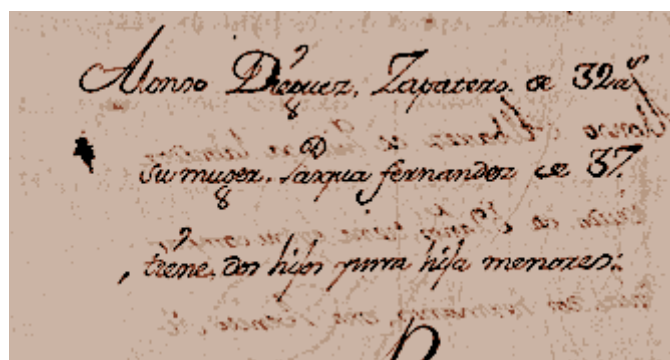 Alonso Dieguez, Zapatero. de 32 aˢ
Su muger, fernandez de 37.
tiene, dos hijos y una hija menores: